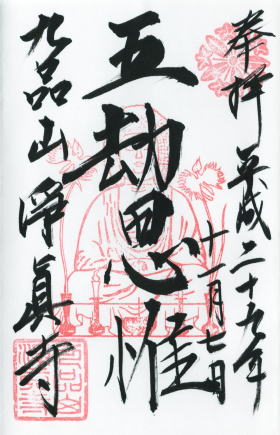 奉拝 平成二十九年
十一月七日
五劫思惟
九品山淨眞寺